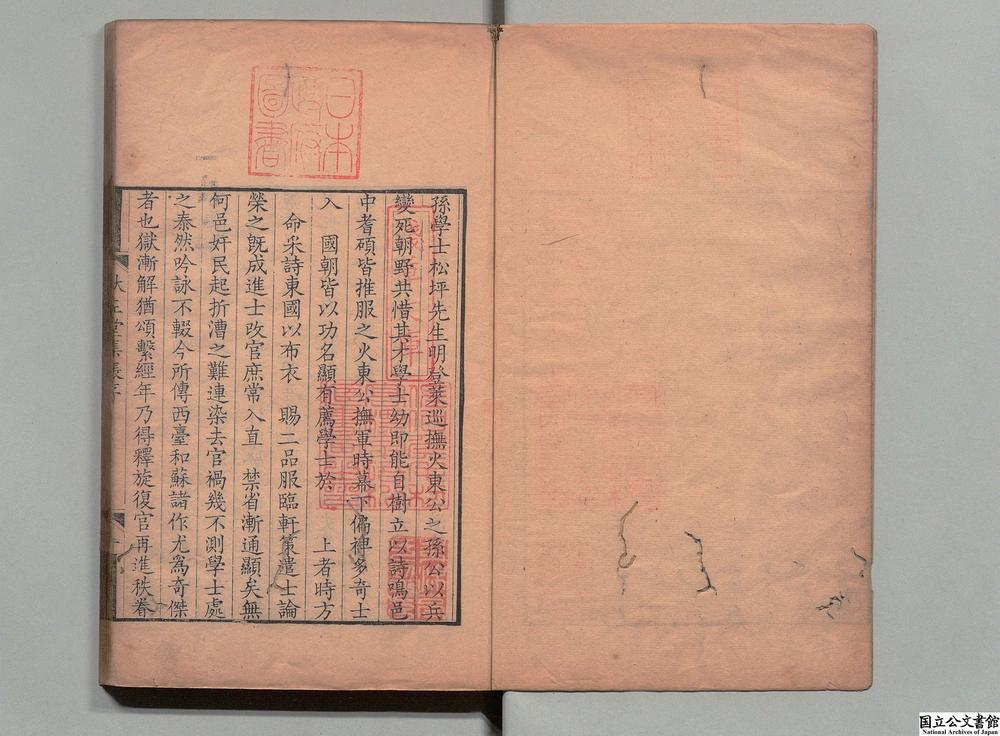 孫學士松坪先生明登萊巡撫火東公之孫公以兵
變死朝野共惜其才學士幼即能自樹立以詩鳴邑
中耆碩皆推服之火東公撫軍時幕下偏裨多奇士
入　國朝皆以功名顯有薦學士於　　上者時方
命采詩東國以布衣　賜二品服臨軒策遣士論
榮之既成進士改官庶常入直　禁省漸通顯矣無
何邑奸民起折漕之難連染去官禍幾不測學士處
之泰然吟詠不輟今所傳西臺和蘇諸作尤為奇傑
者也獄漸解猶頌繫經年乃得釋旋復官再進秩眷
日本政府圖書
国立公文書館
National Archives of Japan